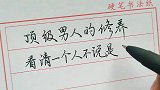 硬笔书法纸
顶级男人的修养
看清一个人不说是